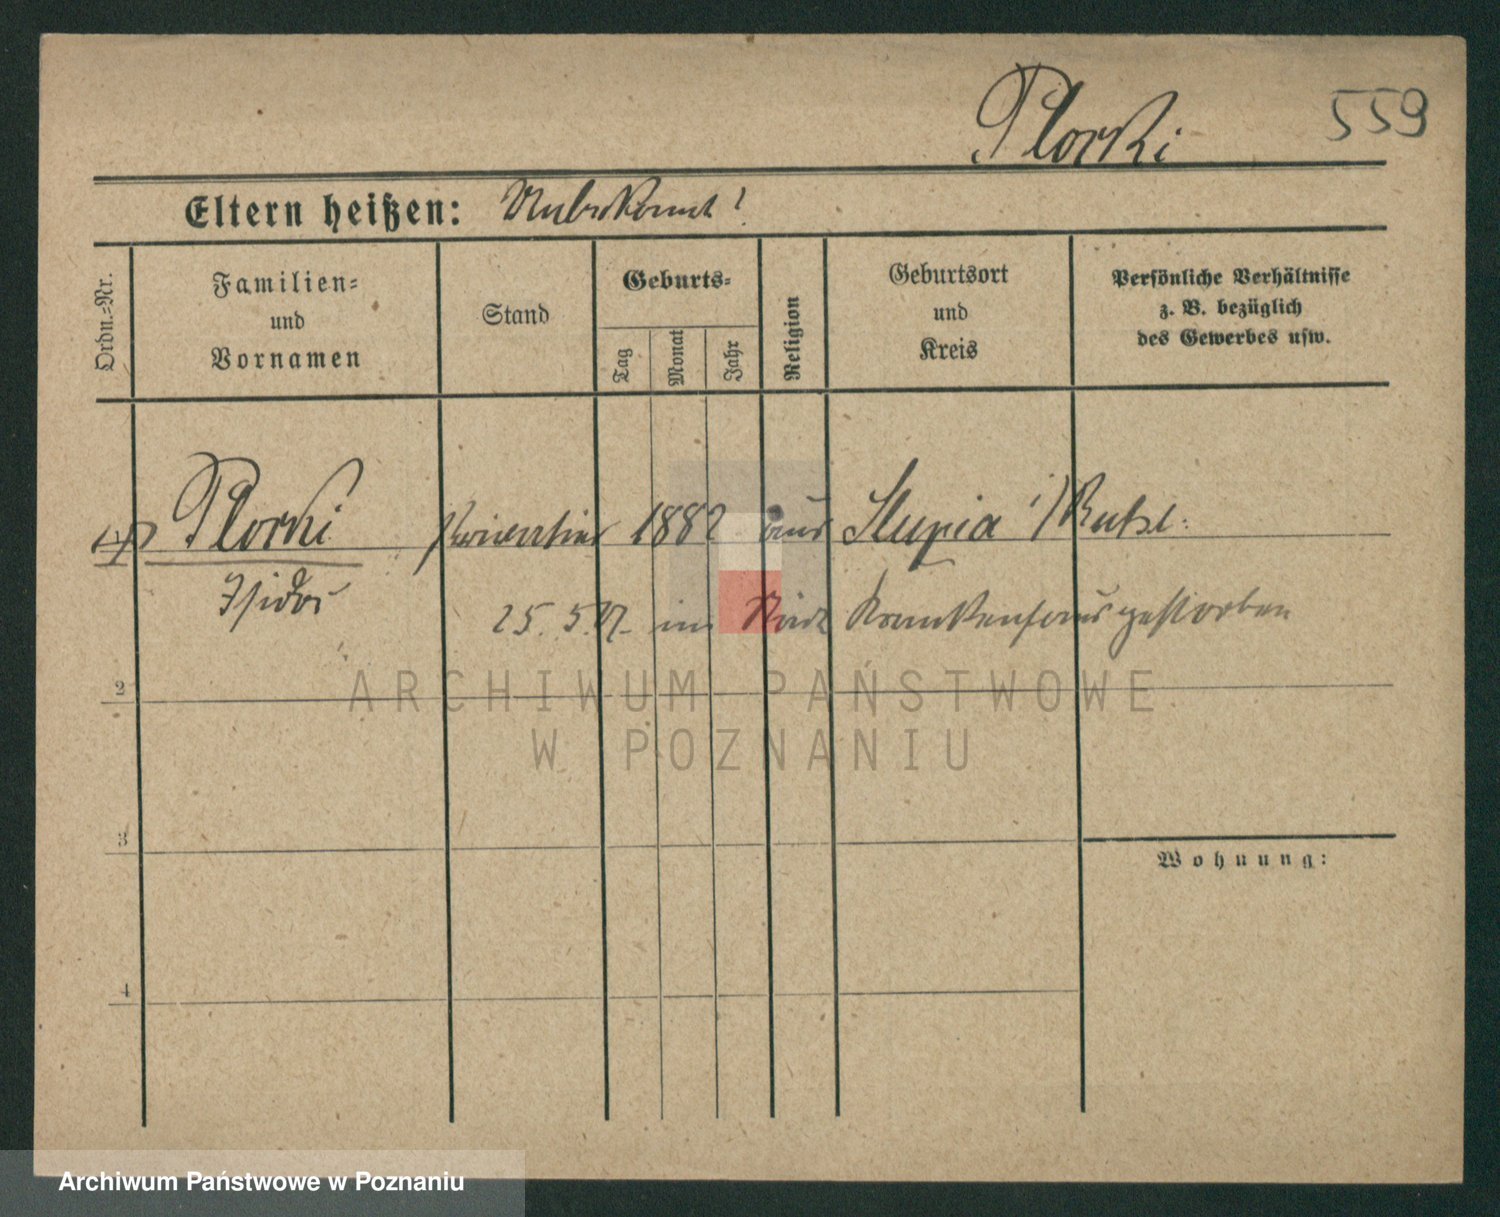 Plorki 559
Eltern heißen: Unbekannt!
Ordn.-Nr.
Familien-
und
Vornamen
Stand
Geburts-
Tag
Monat
Jahr
Religion
Geburtsort
und
Kreis
Persönliche Verhältnisse
z. B. bezüglich
des Gewerbes usw.
Plorki 1882 aus Slupia
Isidor
25. 5. im Krankenhaus gestorben
2
3
4
Wohnung:
ARCHIWUM PAŃSTWOWE
W POZNANIU
Archiwum Państwowe w Poznaniu